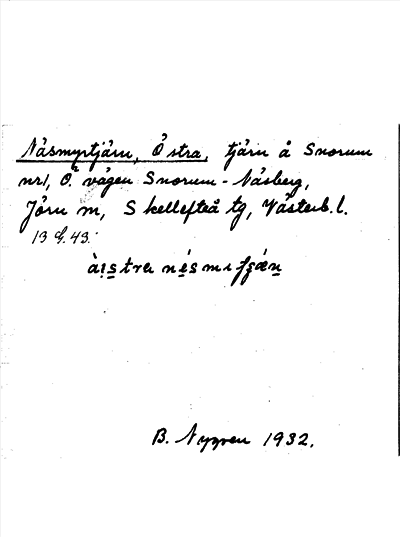 Näsmyrtjärn, Östra, tjärn å Snorum
nr 1, Ö. vägen Snorum - Näsberg,
Jörn sn, Skellefteå tg, Västerb. l.
13 G. 43.
B. Nygren 1932.